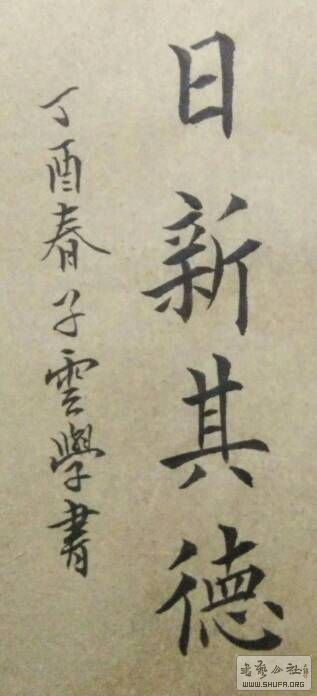 日新其德
丁酉春子雲學書
WWW.SHUFA.ORG